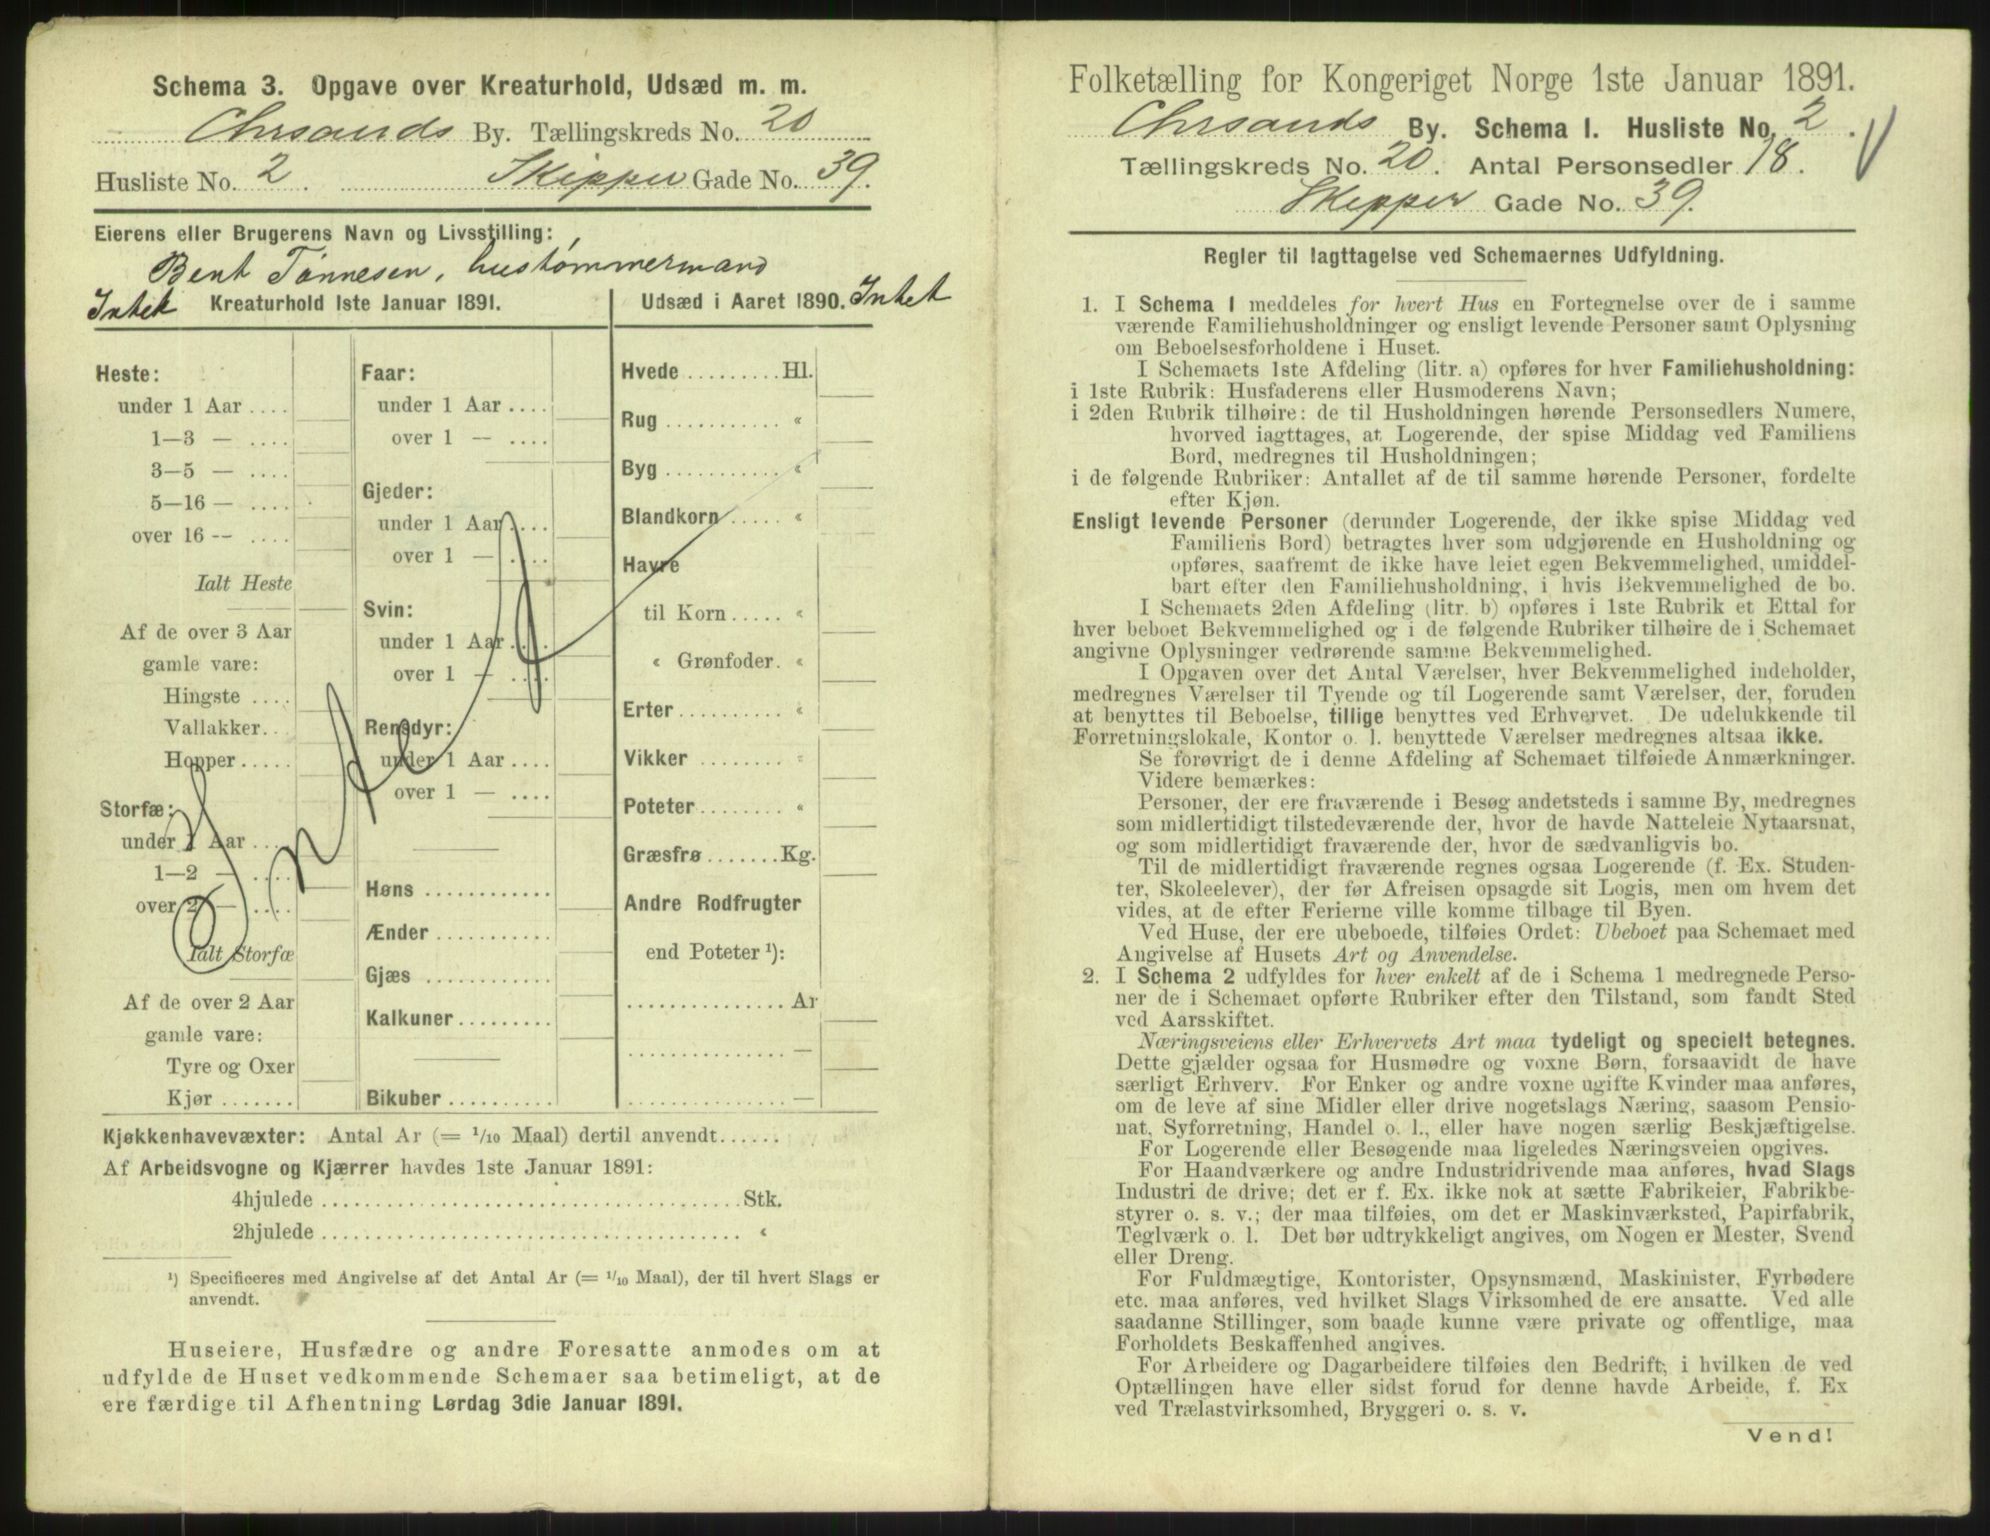 Schema 3. Opgave over Kreaturhold, Udsæd m. m.
Chrsands By. Tællingskreds No. 20
Husliste No. 2. Skipper Gade No. 39.
Eierens eller Brugerens Navn og Livsstilling:
Bent Tønnesen, hustømmermand
Intet Kreaturhold 1ste Januar 1891.
Heste:
under 1 Aar ....
1—3 — ....
3—5 — ....
5—16 — ....
over 16 -- ....
Ialt Heste
Af de over 3 Aar
gamle vare:
Hingste ....
Vallakker..
Hopper.....
Storfæ:
under 1 Aar ....
1—2 — ....
over 2 — ....
Ialt Storfæ
Af de over 2 Aar
gamle vare:
Tyre og Oxer
Kjør .......
Faar:
under 1 Aar ....
over 1 — ....
Gjeder:
under 1 Aar ....
over 1 — ....
Svin:
under 1 Aar ....
over 1 — ....
Rensdyr:
under 1 Aar ....
over 1 — ....
Høns ............
Ænder ...........
Gjæs ............
Kalkuner.........
Bikuber ..........
Udsæd i Aaret 1890. Intet
Hvede .........Hl.
Rug ........... «
Byg ........... «
Blandkorn ..... «
Havre
til Korn ..... «
« Grønfoder. «
Erter .......... «
Vikker ........ «
Poteter ........ «
Græsfrø .......Kg.
Andre Rodfrugter
end Poteter ¹):
............... Ar
............... —
............... —
Intet
Kjøkkenhavevæxter: Antal Ar (= 1/10 Maal) dertil anvendt......
Af Arbeidsvogne og Kjærrer havdes 1ste Januar 1891:
4hjulede ........................................Stk.
2hjulede ........................................ «
¹) Specificeres med Angivelse af det Antal Ar (= 1/10 Maal), der til hvert Slags er
anvendt.
Huseiere, Husfædre og andre Foresatte anmodes om at
udfylde de Huset vedkommende Schemaer saa betimeligt, at de
ere færdige til Afhentning Lørdag 3die Januar 1891.
Folketælling for Kongeriget Norge 1ste Januar 1891.
Chrsands By. Schema I. Husliste No. 2.
Tællingskreds No. 20. Antal Personsedler 18.
Skipper Gade No. 39.
Regler til Iagttagelse ved Schemaernes Udfyldning.
1. I Schema 1 meddeles for hvert Hus en Fortegnelse over de i samme
værende Familiehusholdninger og ensligt levende Personer samt Oplysning
om Beboelsesforholdene i Huset.
I Schemaets 1ste Afdeling (litr. a) opføres for hver Familiehusholdning:
i 1ste Rubrik: Husfaderens eller Husmoderens Navn;
i 2den Rubrik tilhøire: de til Husholdningen hørende Personsedlers Numere,
hvorved iagttages, at Logerende, der spise Middag ved Familiens
Bord, medregnes til Husholdningen;
i de følgende Rubriker: Antallet af de til samme hørende Personer, fordelte
efter Kjøn.
Ensligt levende Personer (derunder Logerende, der ikke spise Middag ved
Familiens Bord) betragtes hver som udgjørende en Husholdning og
opføres, saafremt de ikke have leiet egen Bekvemmelighed, umiddel-
bart efter den Familiehusholdning, i hvis Bekvemmelighed de bo.
I Schemaets 2den Afdeling (litr. b) opføres i 1ste Rubrik et Ettal for
hver beboet Bekvemmelighed og i de følgende Rubriker tilhøire de i Schemaet
angivne Oplysninger vedrørende samme Bekvemmelighed.
I Opgaven over det Antal Værelser, hver Bekvemmelighed indeholder,
medregnes Værelser til Tyende og til Logerende samt Værelser, der, foruden
at benyttes til Beboelse, tillige benyttes ved Erhvervet. De udelukkende til
Forretningslokale, Kontor o. l. benyttede Værelser medregnes altsaa ikke.
Se forøvrigt de i denne Afdeling af Schemaet tilføiede Anmærkninger.
Videre bemærkes:
Personer, der ere fraværende i Besøg andetsteds i samme By, medregnes
som midlertidigt tilstedeværende der, hvor de havde Natteleie Nytaarsnat,
og som midlertidigt fraværende der, hvor de sædvanligvis bo.
Til de midlertidigt fraværende regnes ogsaa Logerende (f. Ex. Studen-
ter, Skoleelever), der før Afreisen opsagde sit Logis, men om hvem det
vides, at de efter Ferierne ville komme tilbage til Byen.
Ved Huse, der ere ubeboede, tilføies Ordet: Ubeboet paa Schemaet med
Angivelse af Husets Art og Anvendelse.
2. I Schema 2 udfyldes for hver enkelt af de i Schema 1 medregnede Perso-
ner de i Schemaet opførte Rubriker efter den Tilstand, som fandt Sted
ved Aarsskiftet.
Næringsveiens eller Erhvervets Art maa tydeligt og specielt betegnes.
Dette gjælder ogsaa for Husmødre og voxne Børn, forsaavidt de have
særligt Erhverv. For Enker og andre voxne ugifte Kvinder maa anføres,
om de leve af sine Midler eller drive nogetslags Næring, saasom Pensio-
nat, Syforretning, Handel o. l., eller have nogen særlig Beskjæftigelse.
For Logerende eller Besøgende maa ligeledes Næringsveien opgives.
For Haandværkere og andre Industridrivende maa anføres, hvad Slags
Industri de drive; det er f. Ex. ikke nok at sætte Fabrikeier, Fabrikbe-
styrer o. s. v.; der maa tilføies, om det er Maskinværksted, Papirfabrik,
Teglværk o. l. Det bør udtrykkeligt angives, om Nogen er Mester, Svend
eller Dreng.
For Fuldmægtige, Kontorister, Opsynsmænd, Maskinister, Fyrbødere
etc. maa anføres, ved hvilket Slags Virksomhed de ere ansatte. Ved alle
saadanne Stillinger, som baade kunne være private og offentlige, maa
Forholdets Beskaffenhed angives.
For Arbeidere og Dagarbeidere tilføies den Bedrift, i hvilken de ved
Optællingen have eller sidst forud for denne havde Arbeide, f. Ex
ved Trælastvirksomhed, Bryggeri o. s. v.
Vend!